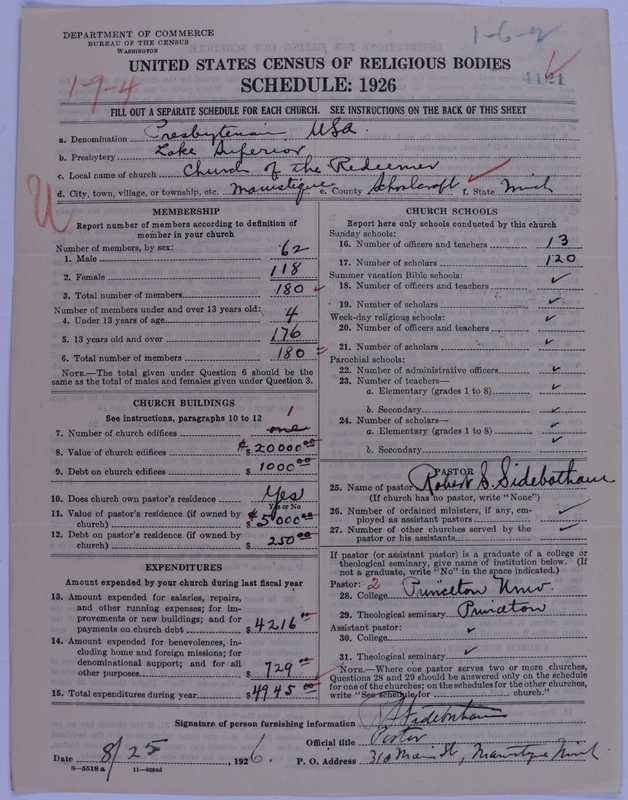 DEPARTMENT OF COMMERCE
BUREAU OF THE CENSUS
WASHINGTON
1-6-2
UNITED STATES CENSUS OF RELIGIOUS BODIES
4121
SCHEDULE: 1926
1-9-4
FILL OUT A SEPARATE SCHEDULE FOR EACH CHURCH. SEE INSTRUCTIONS ON THE BACK OF THIS SHEET
a. Denomination Presbyterian, USA.
b. Presbytery Lake Superior
c. Local name of church Church of the Redeemer
d. City, town, village, or township, etc. Manistique e. County Schoolcraft f. State Mich
MEMBERSHIP
Report number of members according to definition of member in your church
Number of members, by sex:
1. Male 62
2. Female 118
3. Total number of members 180
Number of members under and over 13 years old:
4. Under 13 years of age 4
5. 13 years old and over 176
6. Total number of members 180
NOTE.—The total given under Question 6 should be
the same as the total of males and females given under Question 3.
CHURCH BUILDINGS
See instructions, paragraphs 10 to 12
1
7. Number of church edifices one
8. Value of church edifices $ 20000 00
9. Debt on church edifices $ 1000 00
10. Does church own pastor's residence Yes
Yes or No
11. Value of pastor's residence (if owned by
church) $ 5000 00
12. Debt on pastor's residence (if owned by
church) $ 250 00
EXPENDITURES
Amount expended by your church during last fiscal year
13. Amount expended for salaries, repairs,
and other running expenses; for im-
provements or new buildings; and for
payments on church debt $ 4216 00
14. Amount expended for benevolences, in-
cluding home and foreign missions; for
denominational support; and for all
other purposes $ 729 00
15. Total expenditures during year $ 4945 00
CHURCH SCHOOLS
Report here only schools conducted by this church
Sunday schools:
16. Number of officers and teachers 13
17. Number of scholars 120
Summer vacation Bible schools:
18. Number of officers and teachers
19. Number of scholars
Week-day religious schools:
20. Number of officers and teachers
21. Number of scholars
Parochial schools:
22. Number of administrative officers
23. Number of teachers—
a. Elementary (grades 1 to 8)
b. Secondary
24. Number of scholars—
a. Elementary (grades 1 to 8)
b. Secondary
PASTOR
25. Name of pastor Robert S. Sidebotham
(If church has no pastor, write "None")
26. Number of ordained ministers, if any, em-
ployed as assistant pastors
27. Number of other churches served by the
pastor or his assistants
If pastor (or assistant pastor) is a graduate of a college or
theological seminary, give name of institution below. (If
not a graduate, write "No" in the space indicated.)
Pastor: 2
28. College Princeton Univ.
29. Theological seminary Princeton
Assistant pastor:
30. College
31. Theological seminary
NOTE.—Where one pastor serves two or more churches,
Questions 28 and 29 should be answered only on the schedule
for one of the churches; on the schedules for the other churches,
write "See schedule for church."
Signature of person furnishing information R S Sidebotham
Official title Pastor
Date 8/25, 1926. P. O. Address 310 Main St, Manistique Mich
8—5518 a 11—9056d